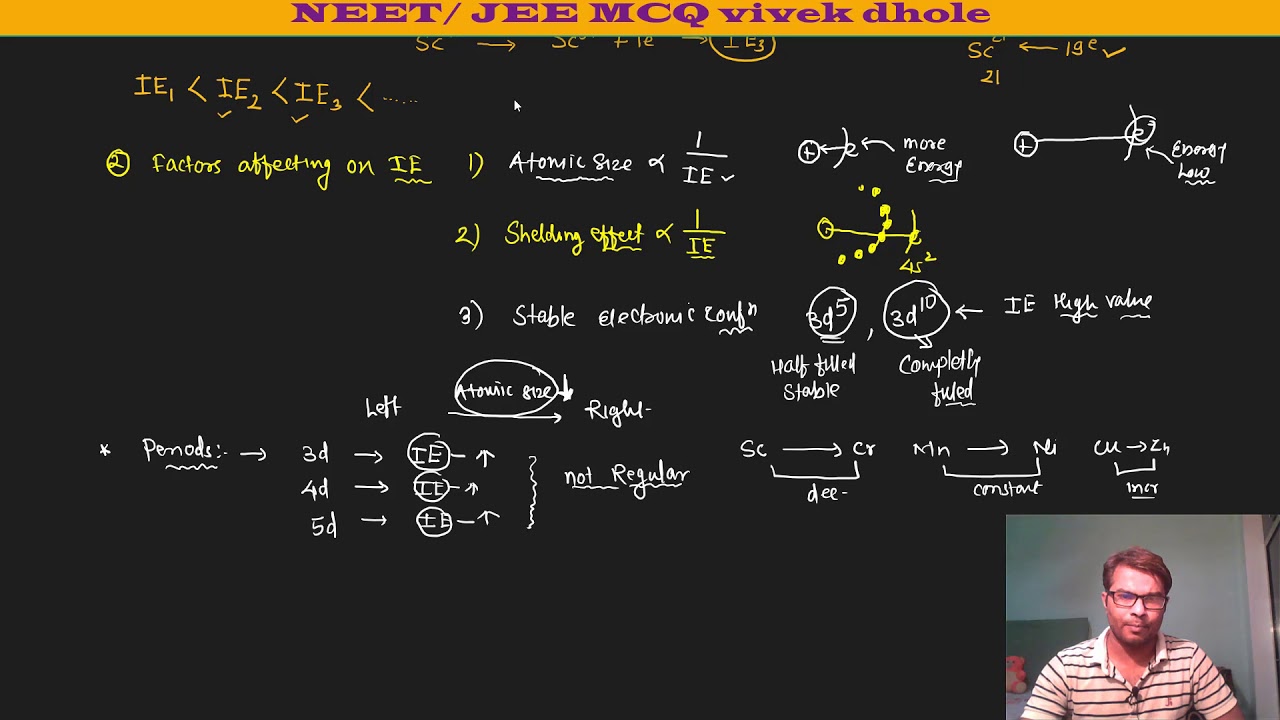 NEET/ JEE MCQ vivek dhole
Sc → Sc + 1e → IE₃
Sc ← 19e ✓
21
IE₁ < IE₂ < IE₃ < ......
② Factors affecting on IE
1) Atomic size ∝ 1/IE ✓
+ ← e ← more Energy
+ e ← Energy Low
2) Shelding effect ∝ 1/IE
e
4s²
3) Stable electronic confⁿ
3d⁵ , 3d¹⁰ ← IE High value
Half filled stable
Completly filled
Left Atomic size ↓ → Right
* Periods:- → 3d → IE - ↑
4d → IE - ↑
5d → IE - ↑
not Regular
Sc → Cr Mn → Ni Cu → Zn
dec- constant incr